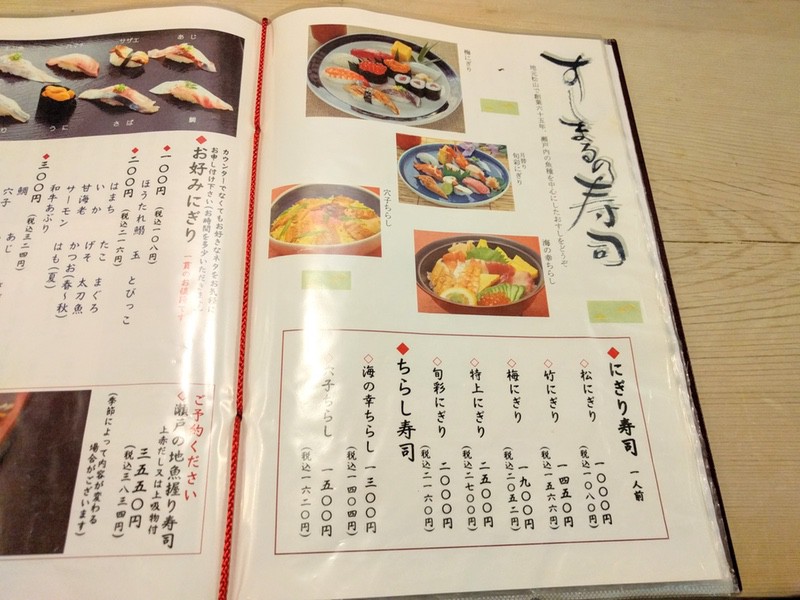 すしまるの寿司
地元松山で創業六十五年、瀬戸内の魚種を中心にしたおすしをどうぞ。
梅にぎり
月替り
旬彩にぎり
穴子ちらし
海の幸ちらし
◆にぎり寿司 一人前
◇松にぎり 一〇〇〇円
(税込一〇八〇円)
◇竹にぎり 一四五〇円
(税込一五六六円)
◇梅にぎり 一九〇〇円
(税込二〇五二円)
◇特上にぎり 二五〇〇円
(税込二七〇〇円)
◇旬彩にぎり 二〇〇〇円
(税込二一六〇円)
◆ちらし寿司
◇海の幸ちらし 一三〇〇円
(税込一四〇四円)
◇穴子ちらし 一五〇〇円
(税込一六二〇円)
サザエ
あじ
うに
さば
鯛
カウンターでなくてもお好きなネタをお気軽に
お申し付け下さい。お時間を多少いただきます。
◆お好みにぎり 一貫のお値段です
◆一〇〇円 (税込一〇八円)
ほうたれ鰯 玉 とびっこ
◆二〇〇円 (税込二一六円)
はまち たこ まぐろ
いか げそ 太刀魚
甘海老 かつお(春〜秋)
サーモン はも(夏)
和牛あぶり
◆三〇〇円 (税込三二四円)
鯛 あじ
穴子
ご予約ください
◇瀬戸の地魚握り寿司
上赤だし又は上吸物付
三五五〇円
(税込三八三四円)
(季節によって内容が変わる
場合がございます)